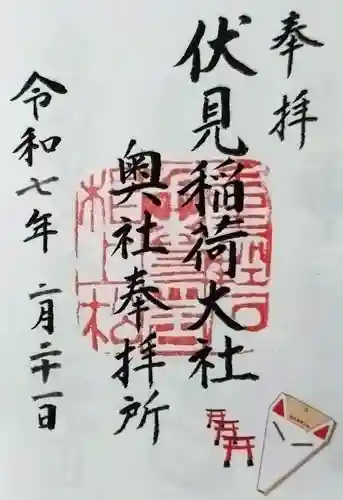 奉拝
伏見稲荷大社
奥社奉拝所
令和七年二月二十一日